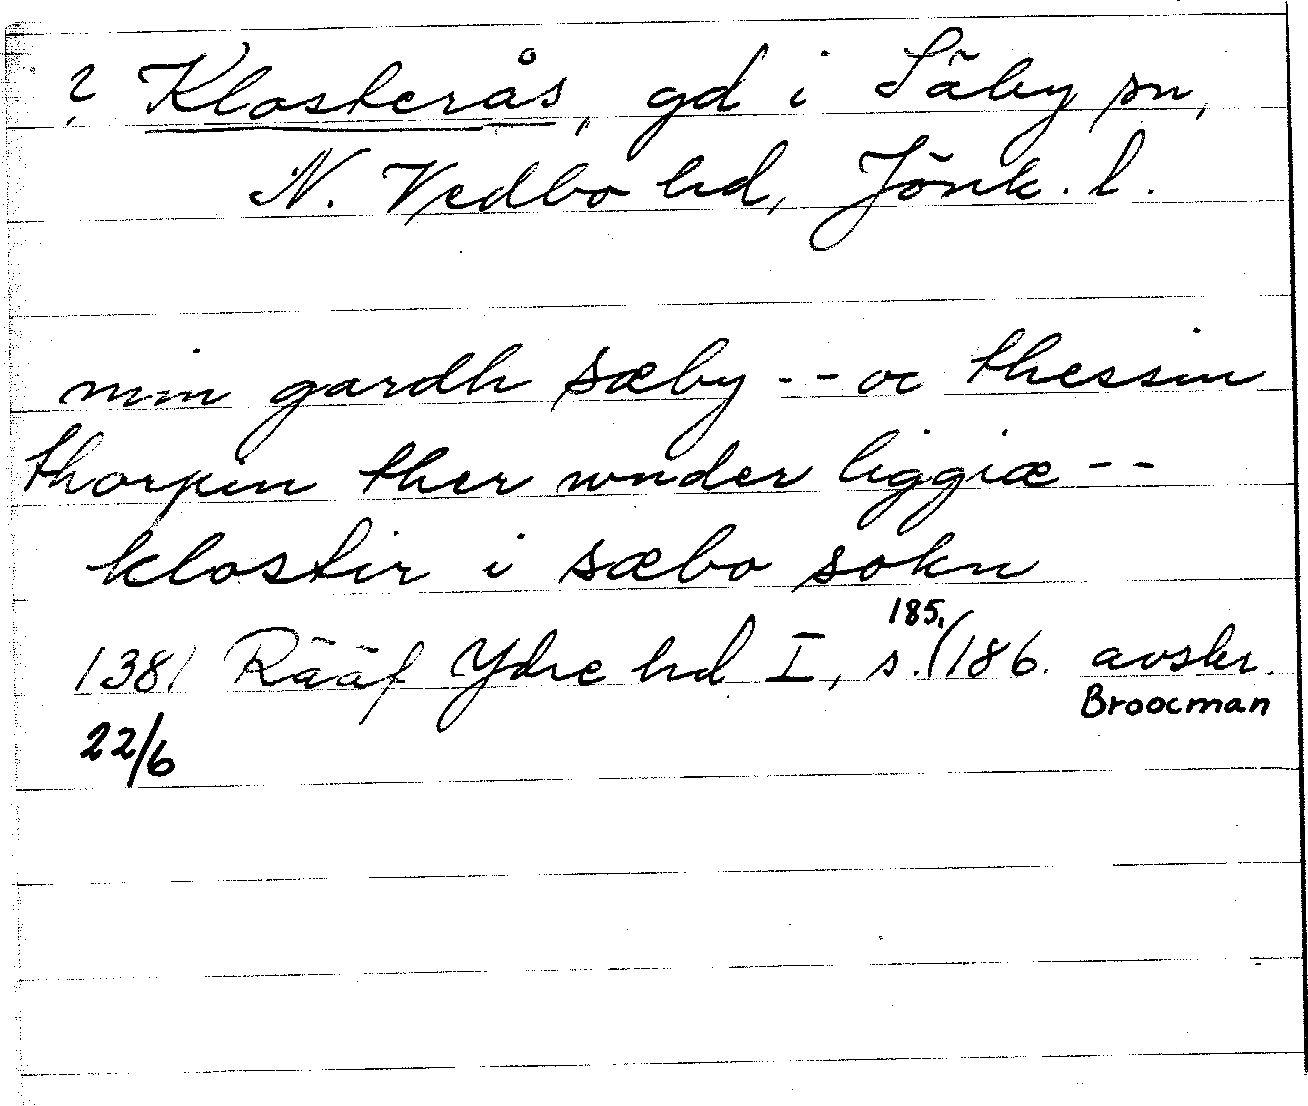 ? Klosterås, gd i Säby sn,
N. Vedbo hd, Jönk. l.
min gardh sæby -- oc thessin
thorpin ther wnder liggiæ --
klostir i sæbo sokn
1381 Rääf Ydre hd I, s. 185, (186. avskr.
22/6 Broocman